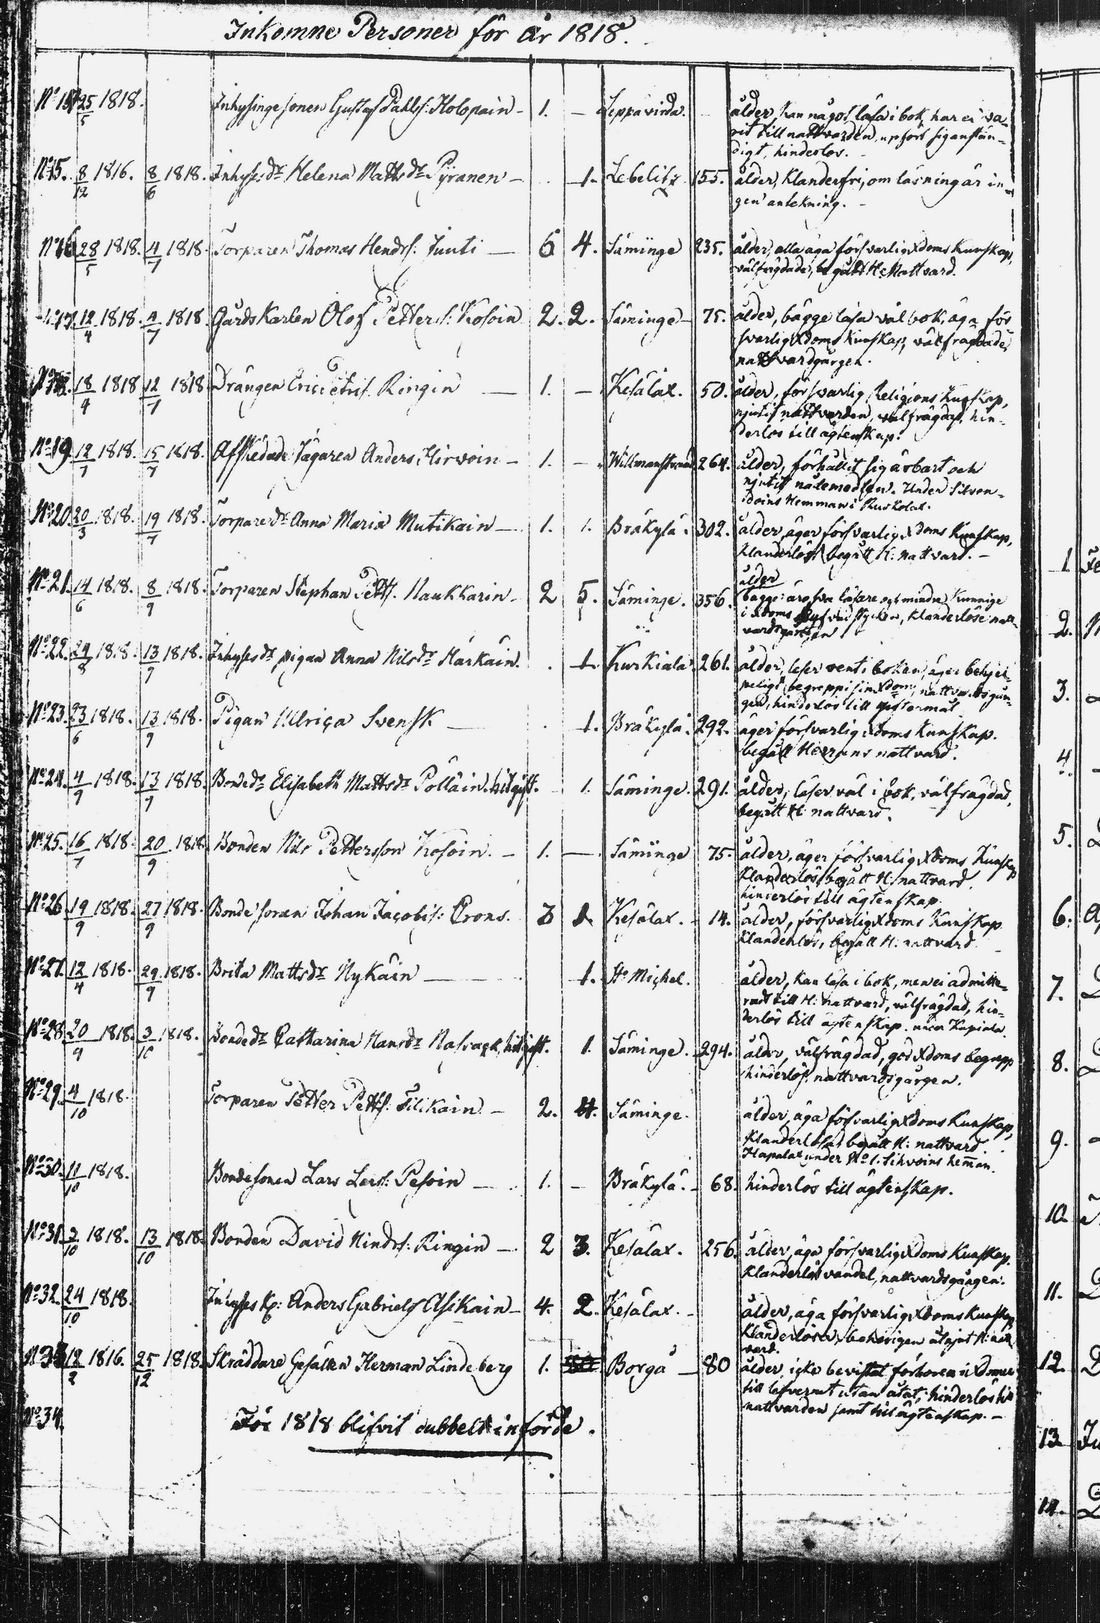 Inkomne Personer för år 1818.
25/5 1818. Inhysinge sonen Gustaf Påhls: Holopain 1. — Leppävirda. ålder, kan något läsa i bok, har ei va-
rit till nattvarden, upfört sig anstän-
digt, hinderlös.
No 15. 8/12 1816. 8/6 1818. Inhyses dr Helena Matts dr Pÿranen 1. Lebelitz 155. ålder, klanderfri, om läsning är in-
gen antekning.
No 16 28/5 1818. 4/7 1818. Torparen Thomas Hendr: Juuti 6 4. Säminge 235. ålder, alla äga försvarlig Xdoms Kunskap,
välfrägdade, begått H: Nattvard.
No 17. 12/4 1818. 4/7 1818. Gårds Karlen Olof Petters: Kosoin 2. 2. Säminge 75. ålder, bägge läsa väl bok, äga för
svarlig Xdoms Kunskap, välfrägdade,
nattvardgången.
18/4 1818 12/7 1818 Drängen Eric Ringin 1. — Kesälax. 50. ålder, försvarlig Religions Kunskap,
njutit nattvarden, välfrägdad, hin-
derlös till ägtenskap.
No 19 12/7 1818. 15/7 1818. Afskedade Jägaren Anders Hirwoin 1. — Willmanstrand 264. ålder, förhållit sig ärbart och
njutit nådemedlen. Under
Hemman i
No 20. 20/3 1818. 19/7 1818. Torpare dr Anna Maria Mutikain 1. 1. Bräkylä. 302. ålder, äger försvarlig Xdoms Kunskap,
Klanderlöst begått H: nattvard.
No 21. 14/6 1818. 8/9 1818. Torparen Stephan Petts. Naukkarin 2 5. Säminge. 356. ålder
bägge äro läsare och mindre Kunnige
i Xdoms stycken, klanderlöse natt-
vardsgången
No 22. 24/8 1818. 13/9 1818. Inhyses dr pigan Anna Nils dr Härkäin. 1. Kurkiala 261. ålder, läser vent i boken, äger behjel-
peligt begrepp i sin Xdom, nattvardsgån-
gen, hinderlös till
No 23. 23/6 1818. 13/9 1818. Pigan Ulrica Svensk 1. Bräkylä. 292. äger försvarlig Xdoms Kunskap.
begått Herrans nattvard.
No 24. 4/9 1818. 13/9 1818. Bonde dr Elisabeth Matts dr Pöllain. hitgift. 1. Säminge. 291. ålder, läser väl i bok, välfrägdad,
begått H: nattvard.
No 25. 16/7 1818. 20/9 1818 Bonden Nils Pettersson Kosoin. 1. — Säminge 75. ålder, äger försvarlig Xdoms Kunskap
Klanderlöst begått H: nattvard.
hinderlös till ägtenskap.
No 26 19/9 1818. 27/9 1818. Bonde sonen Johan Jacobs: Crons. 3 1. Kesälax. 14. ålder, försvarlig Xdoms Kunskap
klanderlös, begått H: nattvard
No 27. 12/4 1818. 29/9 1818. Brita Matts dr Nykäin 1. St Michel. ålder, kan läsa i bok, men ei admitte-
rad till H: nattvard, välfrägdad, hin-
derlös till ägtenskap.
No 28. 20/9 1818. 3/10 1818. Bonde dr Catharina Hans dr hitgift. 1. Säminge. 294. ålder, välfrägdad, god Xdoms begrepp
hinderlös, nattvardsgången.
No 29. 4/10 1818. Torparen Petter Petts. Silikain 2. 4. Säminge. ålder, äga försvarlig Xdoms Kunskap,
Klanderlöst begått H: nattvard.
under No 1. Sihvoins heman.
No 30. 11/10 1818. Bondesonen Lars Lars: Pesoin 1. — Bräkylä. 68. hinderlös till ägtenskap.
No 31. 3/10 1818. 13/10 1818 Bonden David Hindrs: Ringin 2 3. Kesälax. 256. ålder, äga försvarlig Xdoms Kunskap.
Klanderlös vandel, nattvardsgången.
No 32. 24/10 1818. Inhyses K: Anders Gabriels Asikain 4. 2. Kesälax. ålder, äga försvarlig Xdoms Kunskap
Klanderlösa, behörigen niutit H: natt
vard.
12/2 1816. 25/12 1818. Skräddare Gesällen Herman Lindeberg 1. Borgå 80 ålder, icke bevistat förhören i Xdomen
hinderlös till
nattvarden samt till ägtenskap.
No 34. För 1818 blifvit dubbelt införde.
1.
2.
3.
4.
5.
6.
7.
8.
9.
10.
11.
12.
13.
14.